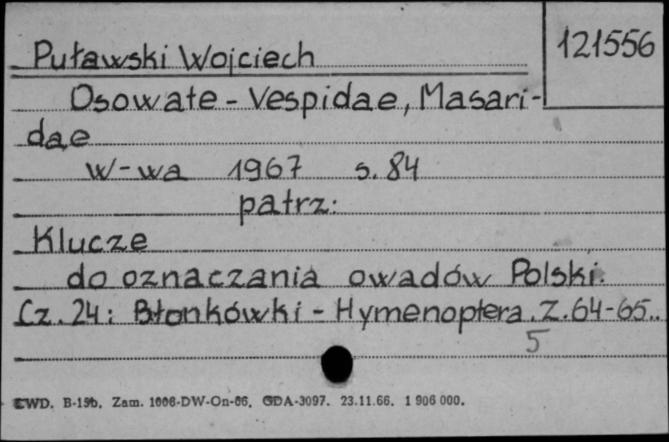 Puławski Wojciech
121556
Osowate - Vespidae, Masari-
dae
W-wa 1967 s. 84
patrz:
Klucze
do oznaczania owadów Polski.
Cz. 24: Błonkówki - Hymenoptera. Z. 64-65.
5
CWD. B-15b. Zam. 1006-DW-On-66. GDA-3097. 23.11.66. 1 906 000.